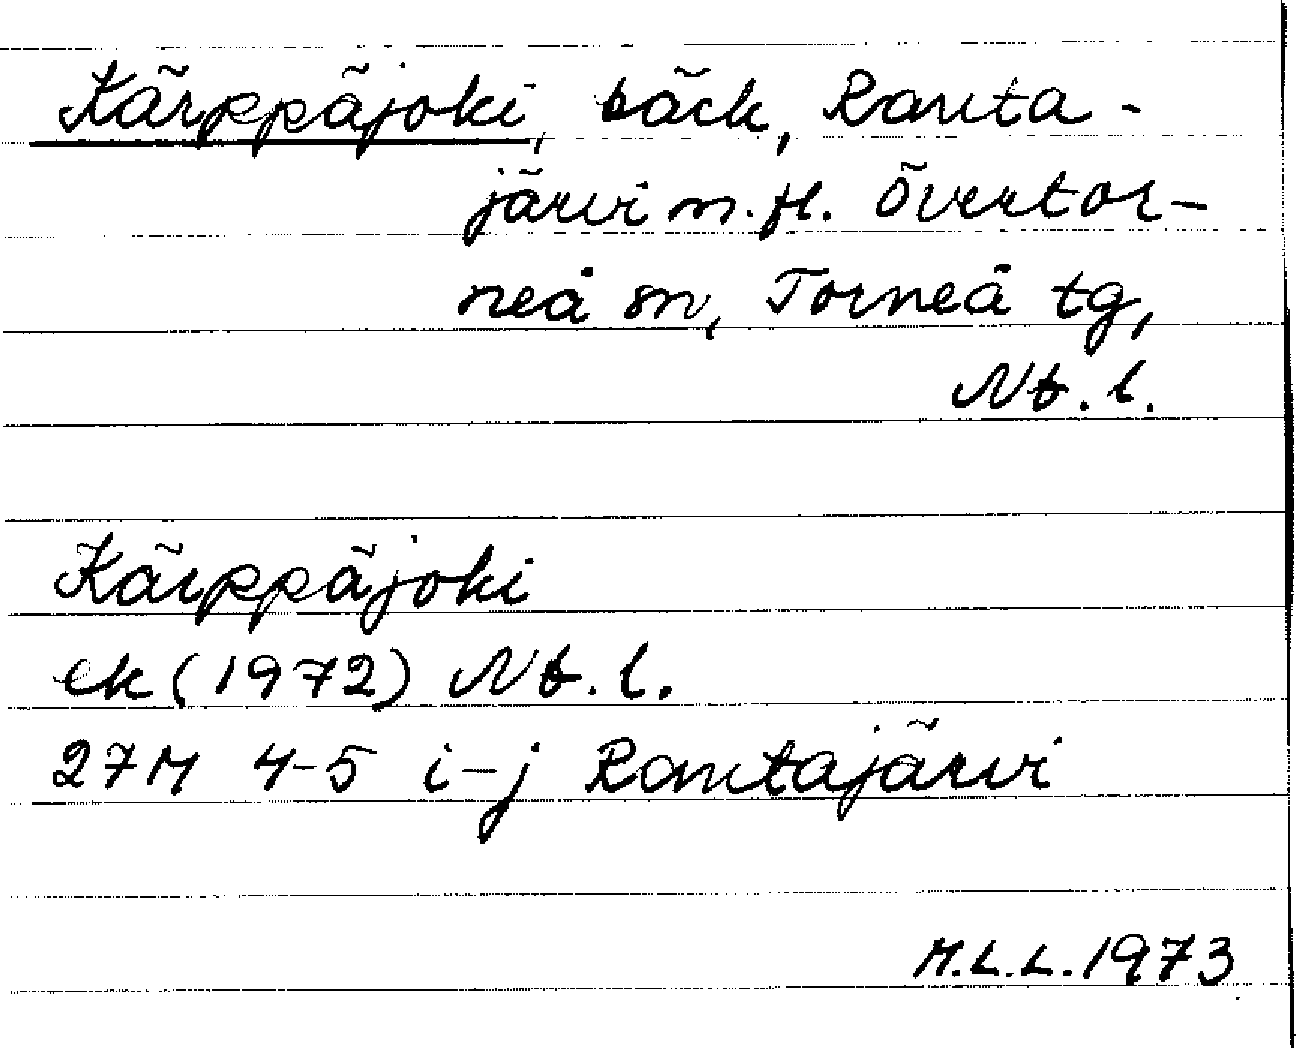 Kärppäjoki, bäck, Ranta-
järvi m.fl. Övertor-
neå sn, Torneå tg,
Nb. l.
Kärppäjoki
ek (1972) Nb. l.
27M 4-5 i-j Rantajärvi
M.L.L. 1973